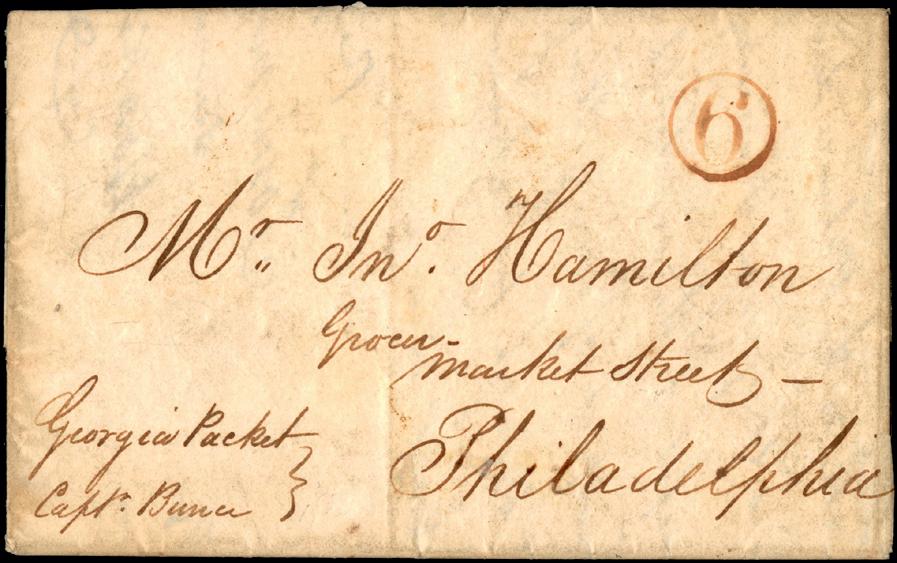 6
Mr. Jno. Hamilton
Grocer-
Market Street —
Philadelphia
Georgia Packet
Captn.